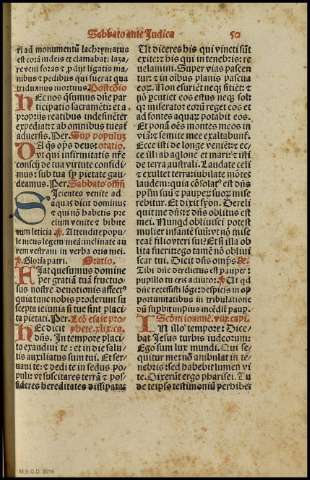 Sabbato ante Judica 50
ri ad monumentū lachrymatus
est corā iudeis et clamabat: laza
re veni foras: et
nibus et pedibus qui fuerat qua
triduanus mortuus. Postcōio
Hec nos qsumus dn̄e par
ticipatio sacramēti: et a
propriis reatibus indesinēter
expediat: ab omnibus tueat
aduersis. Per. Sup populū
Da qs ops deus oratio.
vt qui infirmitatis nr̄e
conscij de tua virtute confidi
mus: sub tua sp pietate gau
deamus. Per. Sabbato offm̄
Sitientes venite ad
aquas dicit dominus
et qui nō habetis pre
cium venite et bibite
cum leticia ps Attendite popu
le meus legem meā: inclinate au
rem vestram in verba oris mei.
℣. Gloria patri. Oratio.
Fiat quesumus domine
per gratiā tuā fructuo
sus nostre deuotionis affectꝰ
quia tunc nobis proderunt su
scepta ieiunia si tue sint placi
ta pietati. Per. Lcō esaie pro
Hec dicit phete. xlix. ca.
dn̄s. In tempore placi
to exaudiui te: et in die salu
tis auxiliatus sum tui. Et ser
uaui te: et dedi te in fedus po
puli: vt suscitares terrā et pos
sideres hereditates dissipatas
Ut diceres his qui vincti sūt
exite: et his qui in tenebris: re
uelamini. Super vias pascen
tur: et in oībus planis pascua
eoꝝ. Non esurient neqꝫ sitient
et nō pcutiet eos estus neqꝫ sol:
qꝫ miserator eoꝝ reget eos et
ad fontes aquaꝝ potabit eos.
Et ponā oēs montes meos in
viā: et semite mee exaltabunt̄.
Ecce isti de longe venient: ec
ce illi ab aglone et mari: et isti
de terra australi. Laudate celi
et exultet terra: iubilate mōtes
laudem: quia cōsolatꝰ est dn̄s
ppl̄m suū: et pauperū suoꝝ mise
rebitur. Et dixit syon. Dereli
quit me dn̄s: et dn̄s oblitus est
mei. Nunqd obliuisci potest
mulier infantē suū: vt nō mise
reat̄ filio vteri sui: Et si illa ob
lita fuerit: ego tamē nō obliuis
car tui. Dicit dn̄s omps
Tibi dn̄e derelictus est pauper:
pupillo tu eris adiutor. ℣ Ut qd
dn̄e recessisti longe: despicis in op
portunitatibus in tribulatione:
dū supbit impius incēdit̄ paup.
Scōm ioānē. viij. capi.
In illo tempore: Dice
bat Jesus turbis iudeorum:
Ego sum lux mundi. Qui se
quitur me: nō ambulat in te
nebris: sed habebit lumen vi
te. Dixerūt ergo pharisei. Tu
de teipso testimoniū perhibes